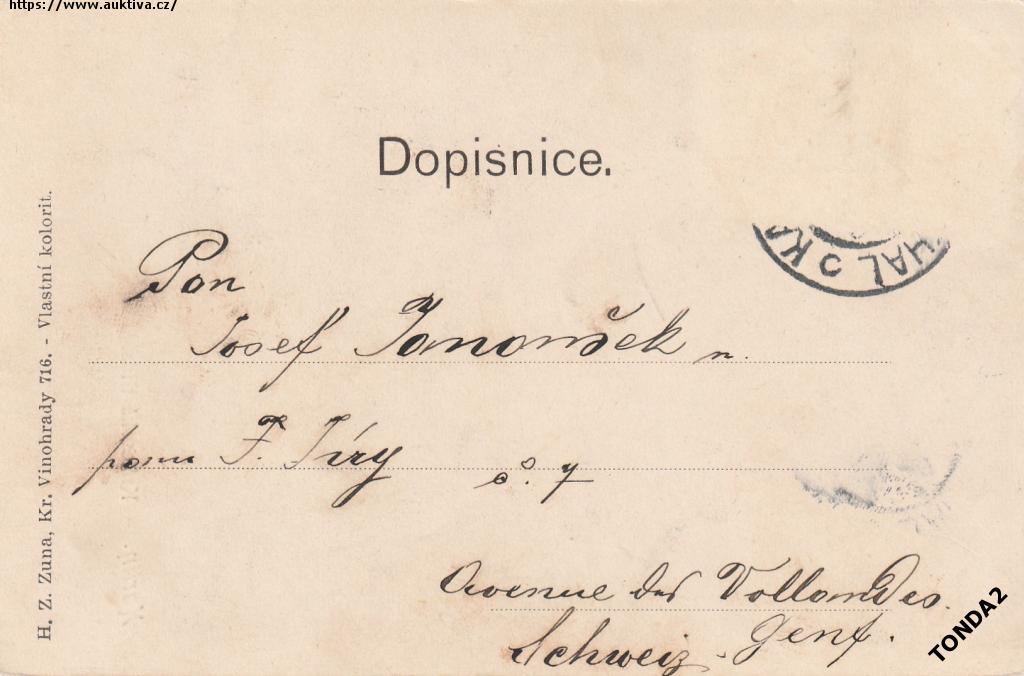 https://www.auktiva.cz/
Dopisnice.
Pan
Josef Janoušek n.
panu F. Jíry
č. 7
Avenue des Vollandes.
Genf.
Schweiz
H. Z. Zuna, Kr. Vinohrady 716. - Vlastní kolorit.
TONDA2